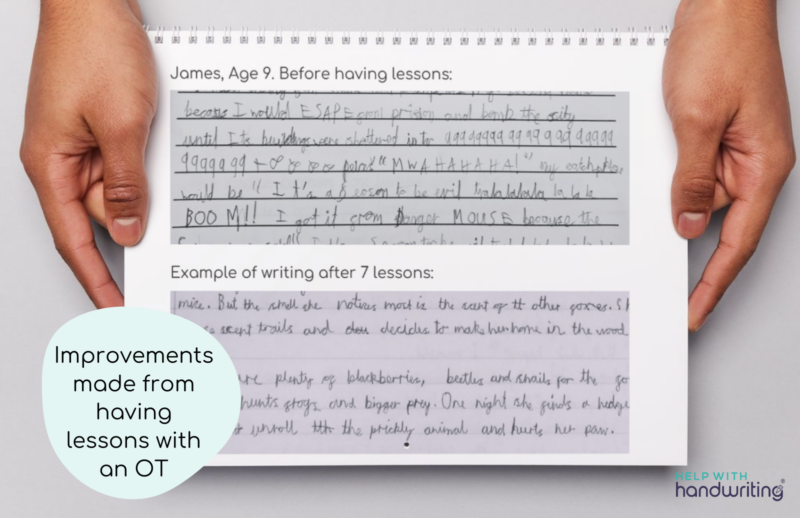 James, Age 9. Before having lessons:
becaus I would ESAPE from prison and bomb the city
until Its buildings were shattered in to 9999999 99 99 99 9 99999
9999999 + ∞ ∞ ∞ ∞ peices "MWAHAHAHA!" my catchphrase
would be "It's a season to be evil tralalalala la la la
BOOM!! I got it from Danger MOUSE because the
Example of writing after 7 lessons:
mice. But the smell she notices most is the scent of other foxes. S
scent trails and decides to make her home in the wood
are plenty of blackberries, beetles and snails for the
hunts frogs, and bigger prey. One night she finds a hedge
unroll the prickly animal and hurts her paw.
Improvements
made from
having
lessons with
an OT
HELP WITH
handwriting